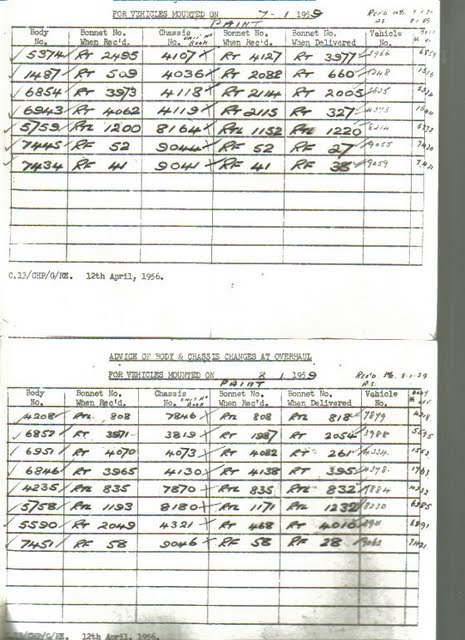 FOR VEHICLES MOUNTED ON 7-1 1959
PAINT
Body No. Bonnet No. When Rec'd. Chassis No. Bonnet No. When Rec'd. Bonnet No. When Delivered Vehicle No.
5374 RT 2495 4107 RT 4127 RT 3977
1487 RT 509 4036 RT 2082 RT 660
6854 RT 3973 4118 RT 2114 RT 2005
6943 RT 4062 4119 RT 2115 RT 327
5759 RTL 1200 8164 RTL 1152 RTL 1220
7445 RF 52 9044 RF 52 RF 27 9055
7434 RF 41 9041 RF 41 RF 38 9059
C.13/CHP/O/RE. 12th April, 1956.
ADVICE OF BODY & CHASSIS CHANGES AT OVERHAUL
FOR VEHICLES MOUNTED ON 2 1 1959
PAINT
Body No. Bonnet No. When Rec'd. Chassis No. Bonnet No. When Rec'd. Bonnet No. When Delivered Vehicle No.
4208 RTL 808 7846 RTL 808 RTL 818 7879
6852 RT 3971 3819 RT 1987 RT 2054 3988
6951 RT 4070 4073 RT 4082 RT 261 4334
6846 RT 3965 4130 RT 4138 RT 395
4235 RTL 835 7870 RTL 835 RTL 832 7884
5758 RTL 1193 8180 RTL 1171 RTL 1232 8230
5590 RT 2049 4321 RT 468 RT 4010
7451 RF 58 9046 RF 58 RF 28
12th April, 1956.